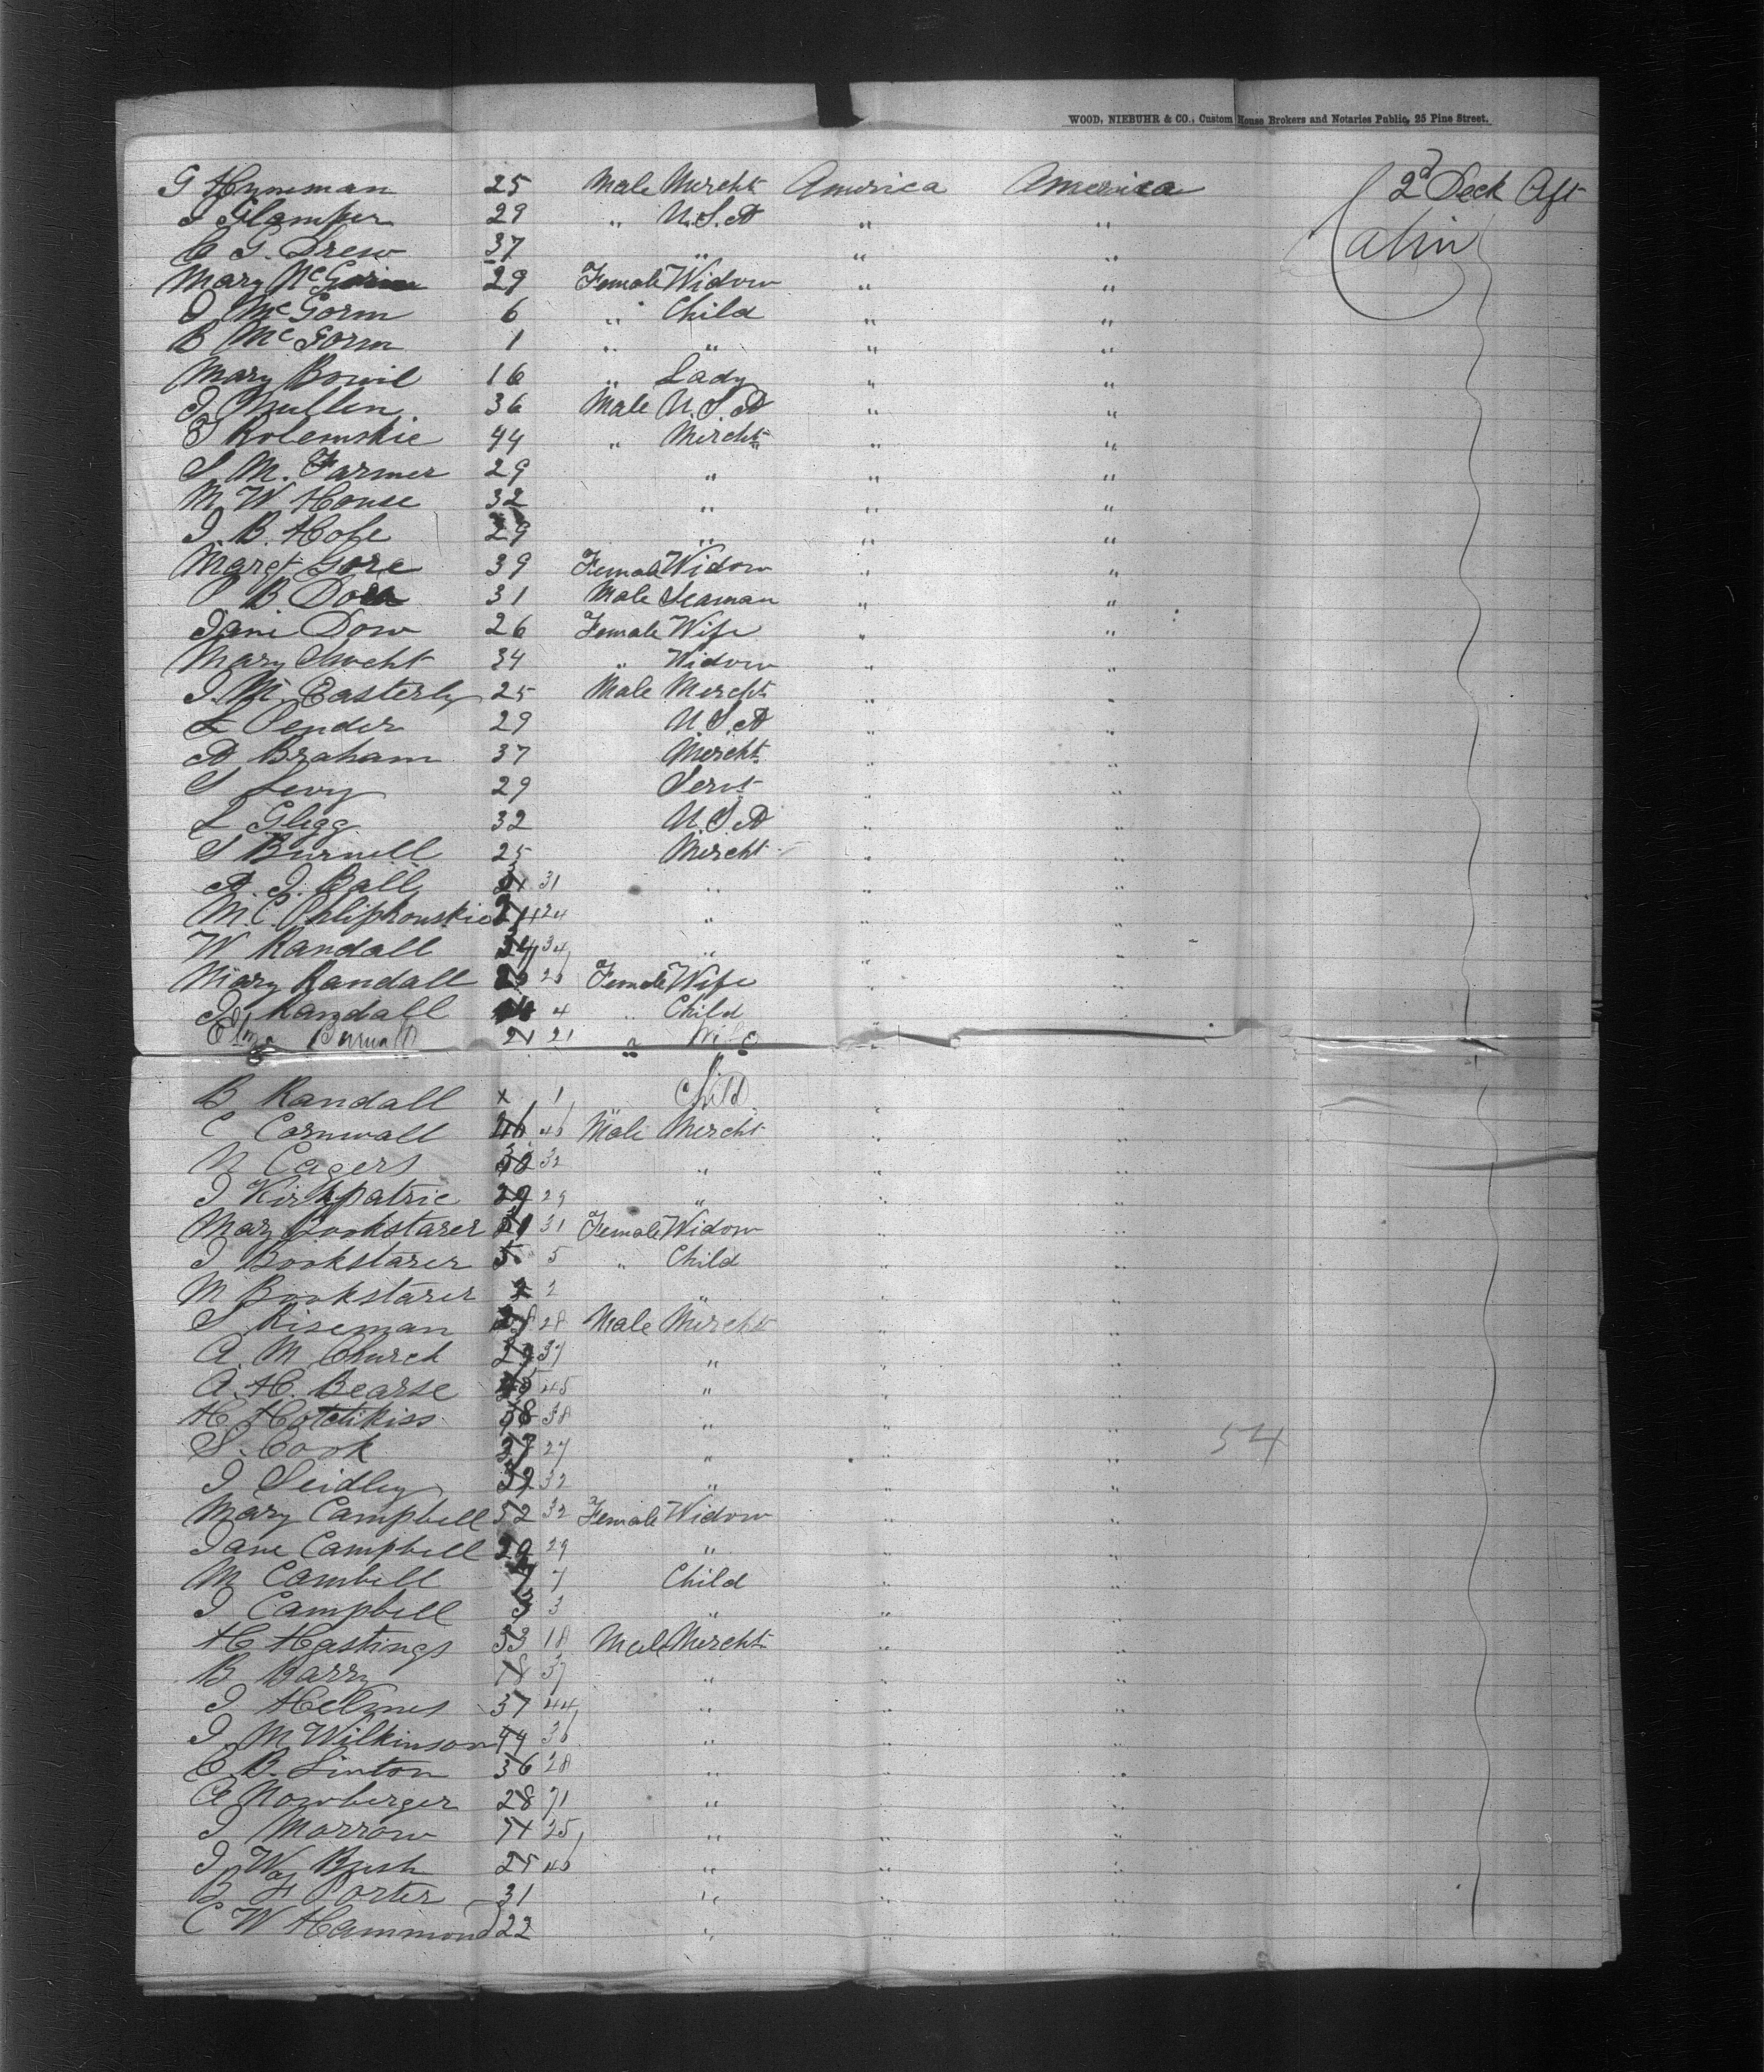 WOOD, NIEBUHR & CO., Custom House Brokers and Notaries Public, 25 Pine Street.
G Hyneman 25 Male Mercht America America 2d Deck Aft
J Glamper 29 " U.S.A " " Cabin
C G. Drew 37 " " "
Mary McGorm 29 Female Widow " "
J McGorm 6 " Child " "
B McGorm 1 " " " "
Mary Bowil 16 " Lady " "
J Mullin 36 Male U.S.A " "
T Rolemskie 44 " Mercht " "
S M. Farmer 29 " " "
M W House 32 " " "
J. B. Hofe 29 " " "
Margt Gore 39 Female Widow " "
P B Dow 31 Male Seaman " "
Jane Dow 26 Female Wife " "
Mary 34 " Widow " "
J. M. Easterly 25 Male Mercht " "
L Pender 29 U.S.A " "
A Braham 37 Mercht " "
S Levy 29 Servt " "
L Glegg 32 U.S.A " "
S Burnell 25 Mercht " "
A. J. Ball 31 " " "
M. C. Philipkouskie 24 24 " "
W Randall 34 34 " " "
Mary Randall 26 26 Female Wife " "
J Randall 4 " Child " "
Eliza Burnall 21 21 " Wife "
B Randall 1 Child " "
C Cornwall 46 46 Male Mercht " "
N Cagers 32 32 " " "
J Kirkpatric 29 29 " " "
Mary Bookstarer 31 31 Female Widow " "
J Bookstarer 5 5 " Child " "
M Bookstarer 2 2 " "
S Riseman 28 28 Male Mercht " "
A. M Church 37 " " "
A. H. Bearse 45 45 " " "
H Hotchkiss 38 38 " " "
S. Cook 27 27 " " " 54
J Seidley 32 32 " " "
Mary Campbell 52 32 Female Widow " "
Jane Campbell 29 29 " " "
M Cambill 7 7 Child " "
J Campbell 3 3 " " "
H Hastings 33 18 Male Mercht " "
B Barry 18 37 " " "
J Helmes 37 44 " " "
J. M Wilkinson 44 36 " " "
C. B. Linton 36 28 " " "
A Nowberger 28 71 " " "
J Morrow 71 25 " " "
J. W. Bush 25 46 " " "
B F Porter 31 " " "
C W Hammond 22 " " "